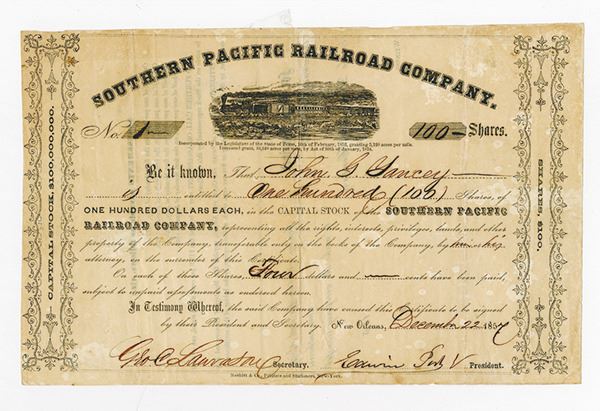 SOUTHERN PACIFIC RAILROAD COMPANY.
No. 1
100 Shares.
Incorporated by the Legislature of the State of Texas, 16th of February, 1852, granting 5,120 acres per mile.
Increased grant, 10,240 acres per mile, by Act of 30th of January, 1854.
Be it known, That John G. Yancey
is entitled to One Hundred (100) Shares, of
ONE HUNDRED DOLLARS EACH, in the CAPITAL STOCK of the SOUTHERN PACIFIC
RAILROAD COMPANY, representing all the rights, interests, privileges, lands, and other
property of the Company, transferable only on the books of the Company, by him or his
attorney, on the surrender of this Certificate.
On each of these Shares Four dollars and cents have been paid,
subject to unpaid assessments as endorsed hereon.
In Testimony Whereof, the said Company have caused this Certificate to be signed
by their President and Secretary. New Orleans, December 22 1857
Geo. C. Lawrason Secretary. Edwin V President.
Nesbitt & Co., Printers and Stationers, New-York.
CAPITAL STOCK, $100,000,000.
SHARES, $100.